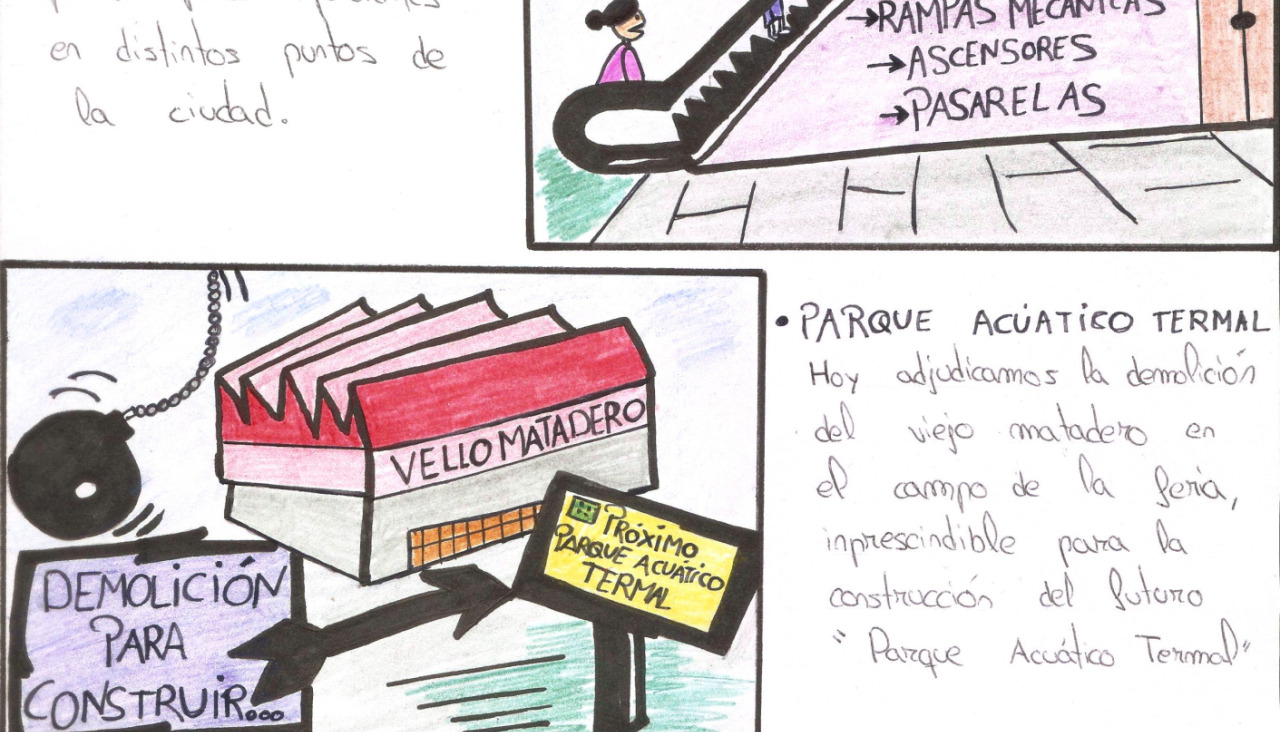 en distintos puntos de
la ciudad.
RAMPAS MECÁNICAS
→ASCENSORES
→PASARELAS
VELLO MATADERO
PRÓXIMO
PARQUE ACUÁTICO
TERMAL
DEMOLICIÓN
PARA
CONSTRUIR...
• PARQUE ACÚATICO TERMAL
Hoy adjudicamos la demolición
del viejo matadero en
el campo de la feria,
inprescindible para la
construcción del futuro
"Parque Acuático Termal"